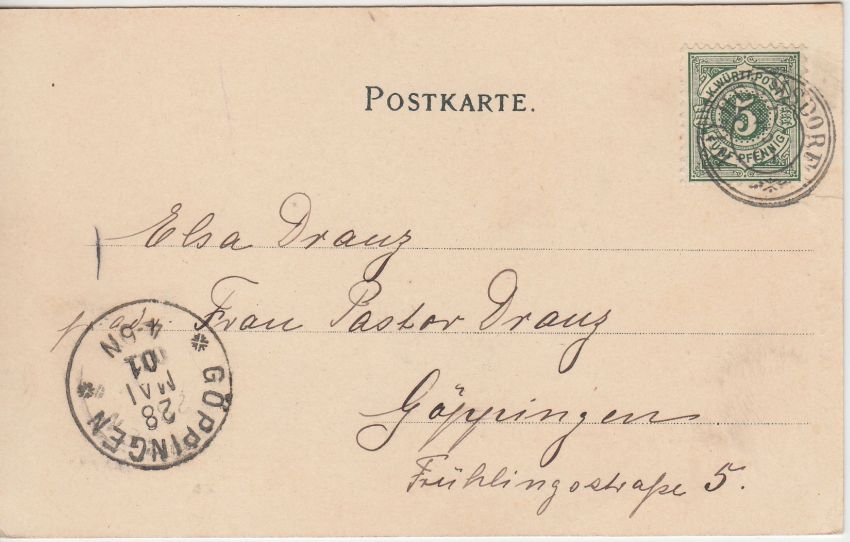 POSTKARTE.
K. WÜRTT. POST
5
FÜNF PFENNIG
SDORF
Elsa Dranz
p. adr. Frau Pastor Dranz
Göppingen
Frühlingsstraße 5.
GÖPPINGEN
28
MAI
01
4-5N